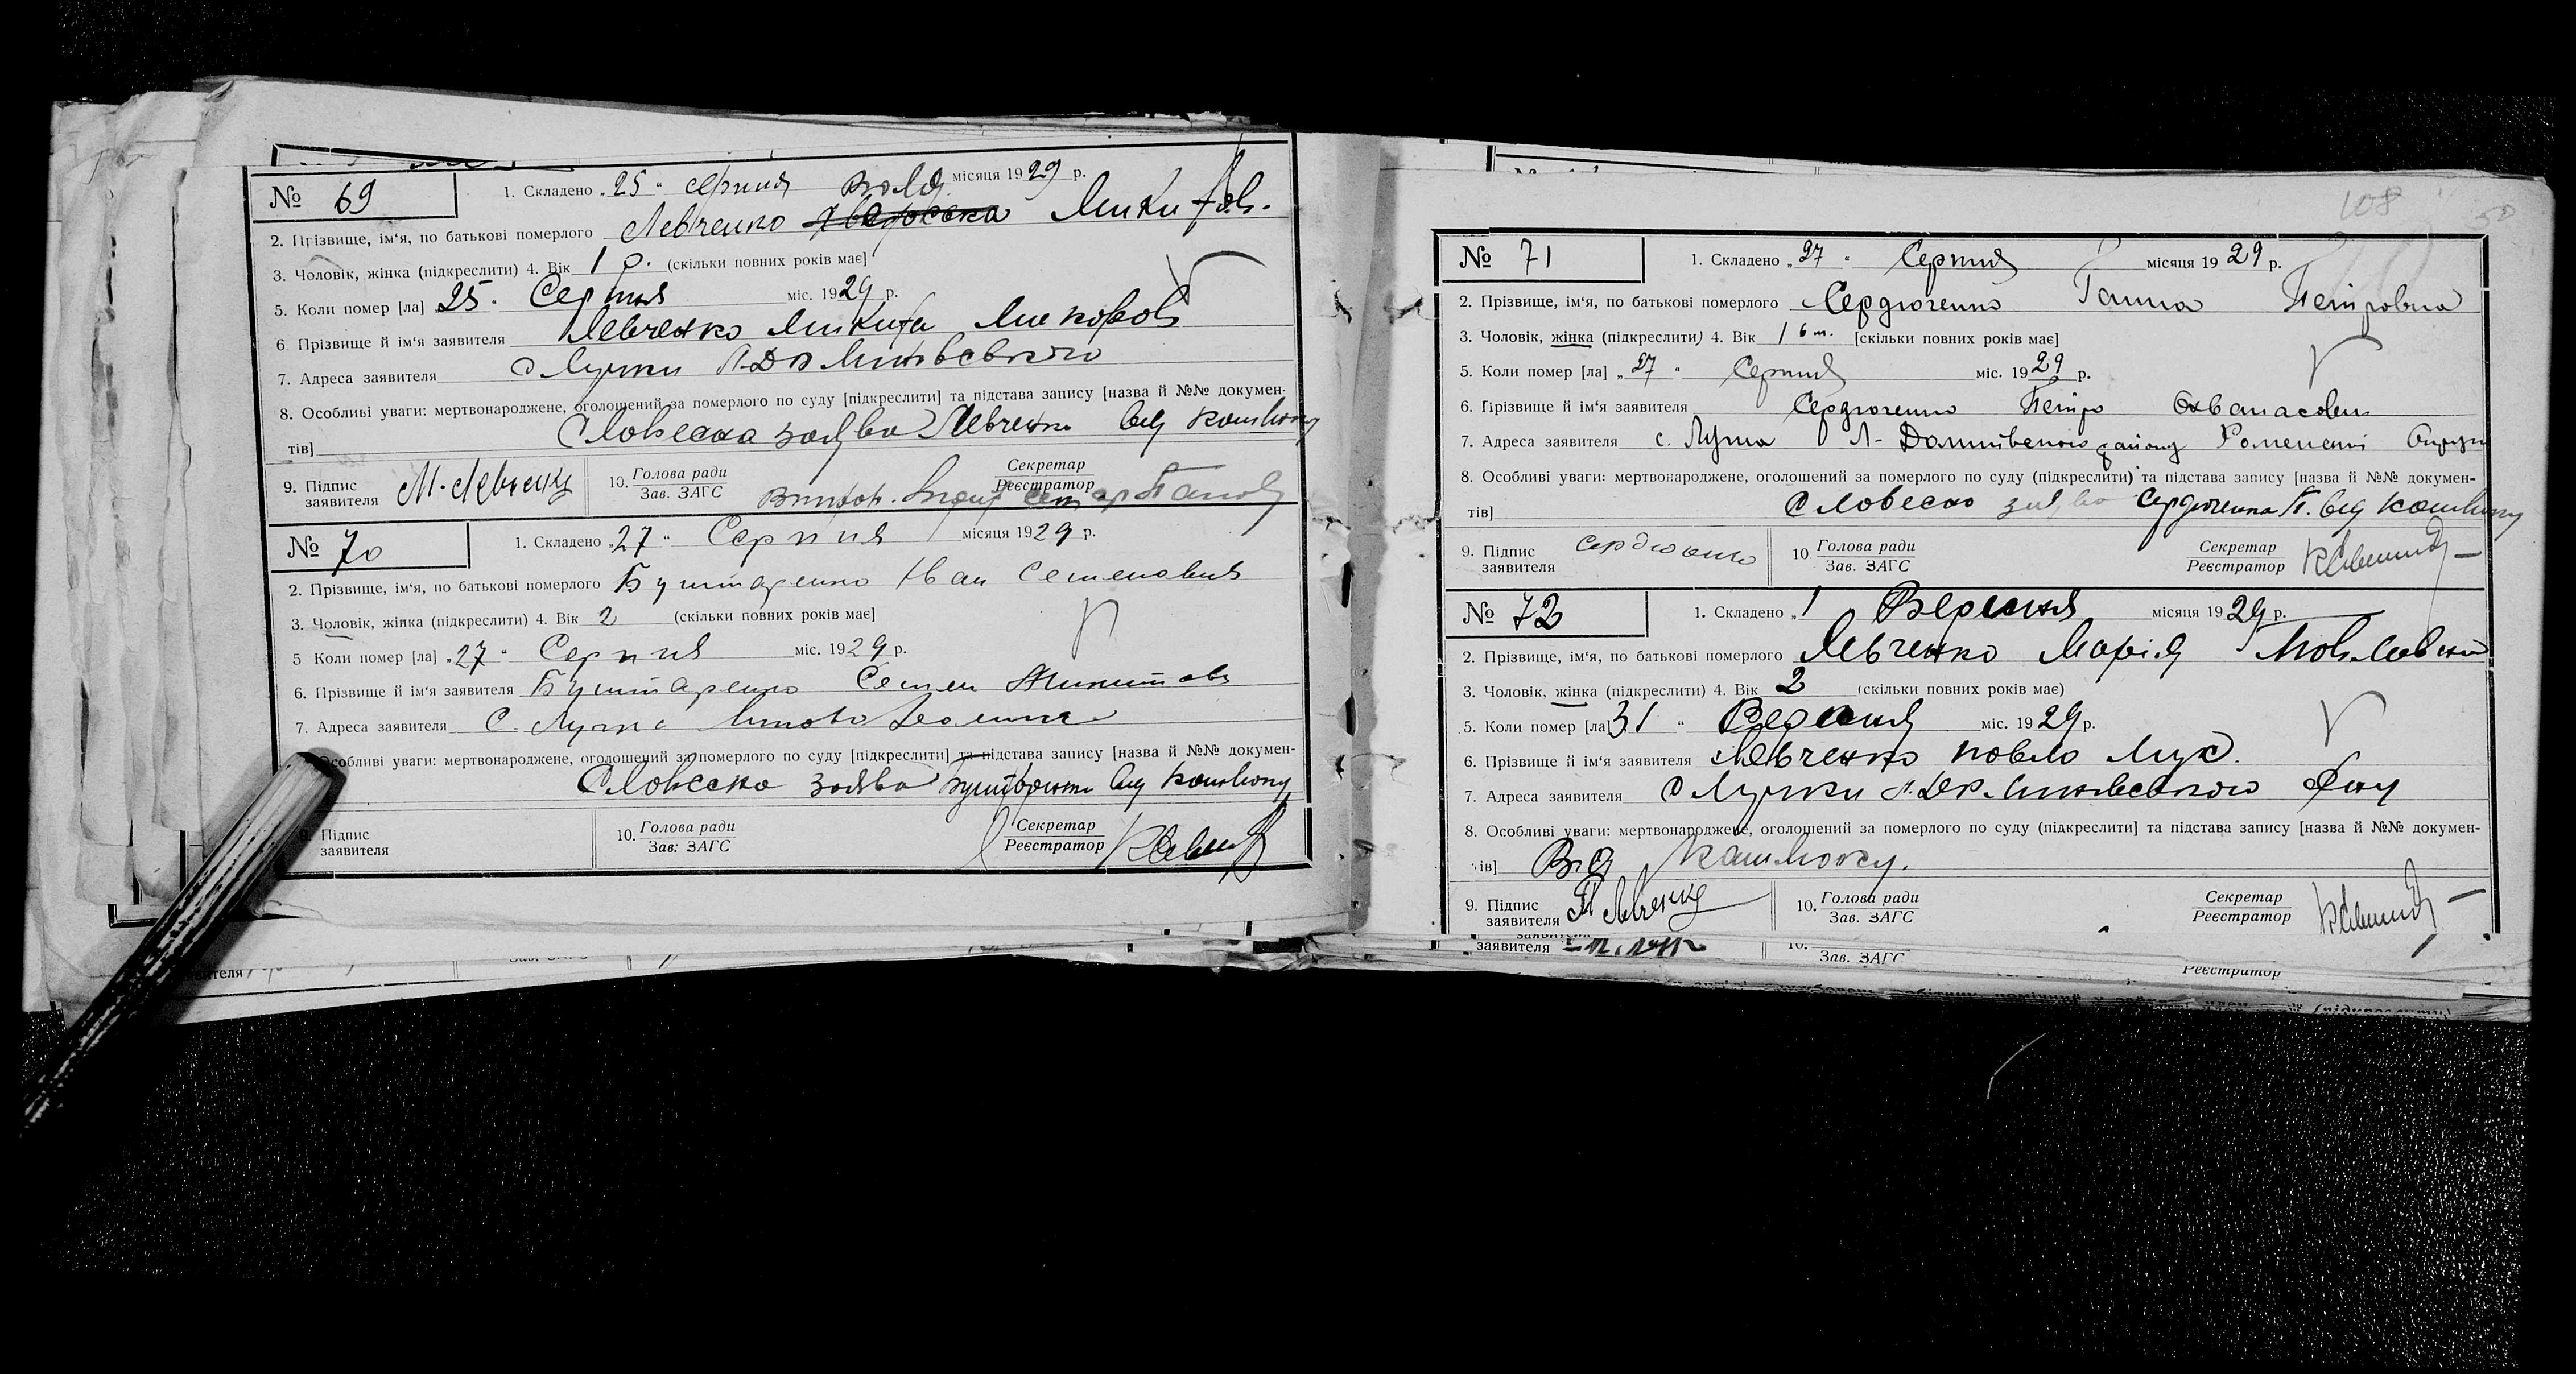 № 69
1. Складено „25“ серпня місяця 1929 р.
Воля
2. Прізвище, ім‘я, по батькові померлого Левченко Микитов.
3. Чоловік, жінка (підкреслити) 4. Вік 1 р. (скільки повних років має]
5. Коли помер [ла] „25“ Серпня міс. 1929 р.
6 Прізвище й ім‘я заявителя Левченко Микита
7. Адреса заявителя с Лучки
8. Особливі уваги: мертвонароджене, оголошений за померлого по суду [підкреслити] та підстава запису [назва й №№ докумен-
тів] Словесна заява Левченко від кашлюку
9. Підпис заявителя М. Левченко
10. Голова ради
Зав. ЗАГС
Секретар
Реєстратор
№ 70
1. Складено „27“ Серпня місяця 1929 р.
2. Прізвище, ім‘я, по батькові померлого Іван Семенович
3. Чоловік, жінка (підкреслити) 4. Вік 2 (скільки повних років має]
5 Коли помер [ла] „27“ Серпня міс. 1929 р.
6. Прізвище й ім‘я заявителя Семен Микитов
7. Адреса заявителя С. Лучка
Особливі уваги: мертвонароджене, оголошений за померлого по суду [підкреслити] та підстава запису [назва й №№ докумен-
Словесна заява від кашлюку
9. Підпис
заявителя
10. Голова ради
Зав: ЗАГС
Секретар
Реєстратор
108
50
№ 71
1. Складено „27“ Серпня місяця 1929 р.
2. Прізвище, ім‘я, по батькові померлого Сердюченко Ганна Петровна
3. Чоловік, жінка (підкреслити) 4. Вік 1 6 м. [скільки повних років має]
5. Коли помер [ла] „27“ Серпня міс. 1929 р.
6. Прізвище й ім‘я заявителя Сердюченко Петро Охванасович
7. Адреса заявителя с. Лучка Л- району Роменської Округи
8. Особливі уваги: мертвонароджене, оголошений за померлого по суду (підкреслити) та підстава запису [назва й №№ докумен-
тів] Словесно заява Сердюченка П. від кашлюку
9. Підпис
заявителя Сердюченко
10. Голова ради
Зав. ЗАГС
Секретар
Реєстратор
№ 72
1. Складено „1 Вересня місяця 1929 р.
2. Прізвище, ім‘я, по батькові померлого Левченко Марія Повловна
3. Чоловік, жінка (підкреслити) 4. Вік 2 (скільки повних років має)
5. Коли помер [ла] 31 “ міс. 1929 р.
6. Прізвище й ім‘я заявителя Левченко Повло Лук.
7. Адреса заявителя с Лучки
8. Особливі уваги: мертвонароджене, оголошений за померлого по суду (підкреслити] та підстава запису [назва й №№ докумен-
ів] Від кашлюку.
9. Підпис
заявителя П Левченко
10. Голова ради
Зав. ЗАГС
Секретар
Реєстратор
заявителя
10.
Зав. ЗАГС
Реєстратор